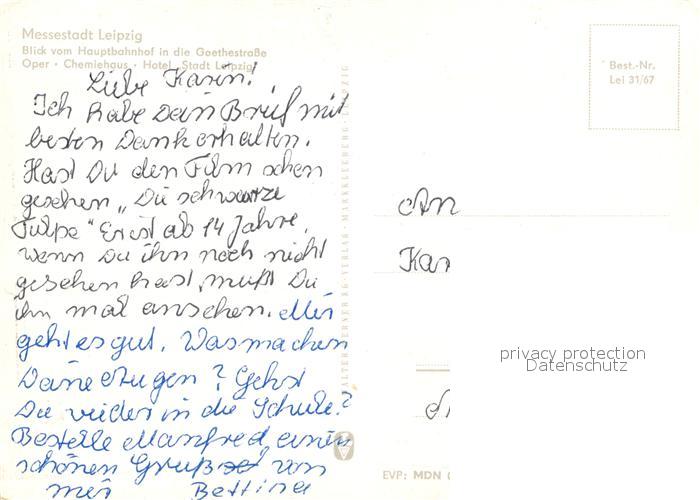 Messestadt Leipzig
Blick vom Hauptbahnhof in die Goethestraße
Oper · Chemiehaus · Hotel Stadt Leipzig
Liebe Karin!
Ich habe Dein Brief mit
besten Dank erhalten.
Hast Du den Film schon
gesehen „Die schwarze
Tulpe" Er ist ab 14 Jahre,
wenn Du ihn noch nicht
gesehen hast, mußt Du
ihn mal ansehen. Mir
geht es gut. Was machen
Deine Augen? Gehst
Du wieder in die Schule?
Bestelle Manfred einen
schönen Gruß von
mir Bettina
Best.-Nr.
Lei 31/67
An
Kar
privacy protection
Datenschutz
EVP: MDN